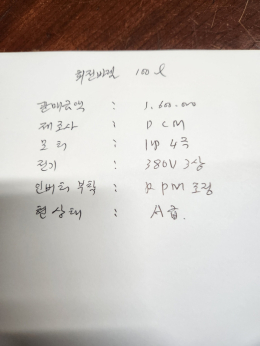 회전바렐 100ℓ
판매금액 : 1.600.000
제조사 : DCM
모터 : 1HP 4극
전기 : 380V 3상
인버터 부착 : RPM 조정
현상태 : A급.